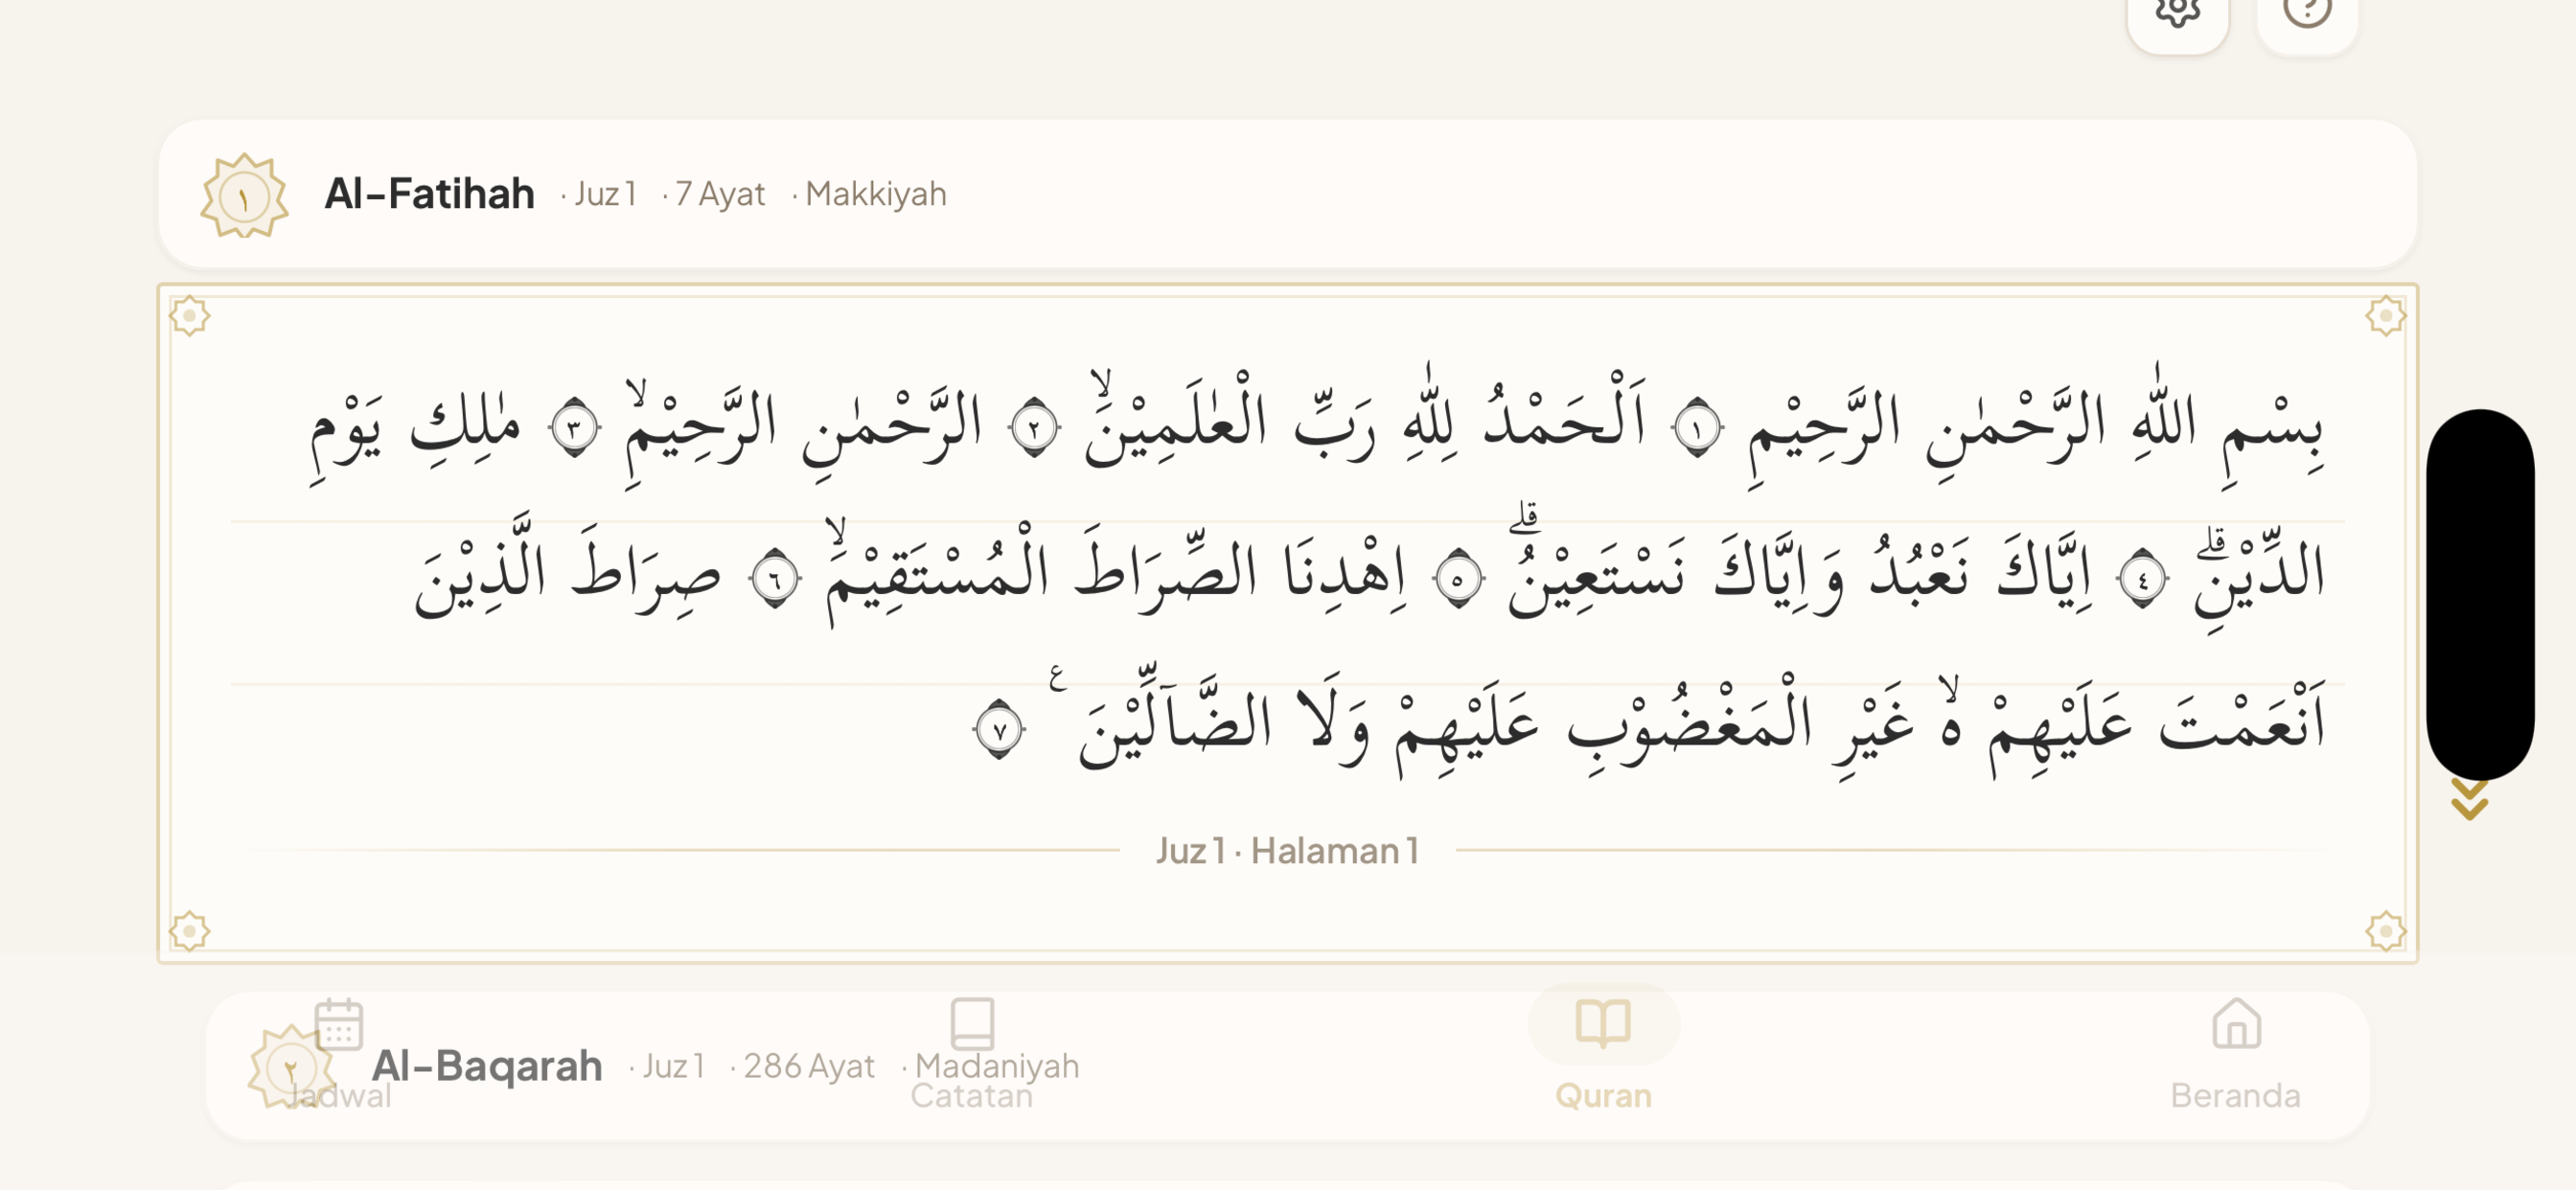 ١ Al-Fatihah · Juz 1 · 7 Ayat · Makkiyah
بِسْمِ اللّٰهِ الرَّحْمٰنِ الرَّحِيْمِ ١ اَلْحَمْدُ لِلّٰهِ رَبِّ الْعٰلَمِيْنَۙ ٢ الرَّحْمٰنِ الرَّحِيْمِۙ ٣ مٰلِكِ يَوْمِ
الدِّيْنِۗ ٤ اِيَّاكَ نَعْبُدُ وَاِيَّاكَ نَسْتَعِيْنُۗ ٥ اِهْدِنَا الصِّرَاطَ الْمُسْتَقِيْمَۙ ٦ صِرَاطَ الَّذِيْنَ
اَنْعَمْتَ عَلَيْهِمْ ەۙ غَيْرِ الْمَغْضُوْبِ عَلَيْهِمْ وَلَا الضَّاۤلِّيْنَ ࣖ ٧
Juz 1 · Halaman 1
٢ Al-Baqarah · Juz 1 · 286 Ayat · Madaniyah
Jadwal Catatan Quran Beranda